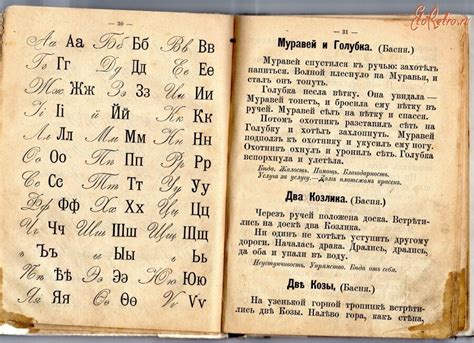 — 30 —
Аа Аа Бб Бб Вв Вв
Гг Гг Дд Дд Ее Ее
Жж Жж Зз Зз Ии Ии
Іі Іі й Йй Кк Кк
Лл Лл Мм Мм Нн Нн
Оо Оо Пп Пп Рр Рр
Сс Сс Тт Тт Уу Уу
Фф Фф Хх Хх Цц Цц
Чч Чч Шш Шш Щщ Щщ
ъ Ъъ ы Ыы ь Ьь
Ѣѣ Ѣѣ Ээ Ээ Юю Юю
Яя Яя Ѳѳ Ѳѳ Ѵѵ Ѵѵ
EtoRetro.ru
— 31 —
Муравей и Голубка. (Басня.)
Муравей спустился къ ручью: захотѣлъ
напиться. Волной плеснуло на Муравья, и
сталъ онъ тонуть.
Голубка несла вѣтку. Она увидала —
Муравей тонетъ, и бросила ему вѣтку въ
ручей. Муравей сѣлъ на вѣтку и спасся.
Потомъ охотникъ разставилъ сѣть на
Голубку и хотѣлъ захлопнуть. Муравей
подползъ къ охотнику и укусилъ ему ногу.
Охотникъ охнулъ и уронилъ сѣть. Голубка
вспорхнула и улетѣла.
Бѣда. Жалость. Помощь. Благодарность.
Услуга за услугу.—Долгъ платежомъ красенъ.
Два Козлика. (Басня.)
Черезъ ручей положена доска. Встрѣти-
лись на доскѣ два Козлика.
Ни одинъ не хотѣлъ уступить другому
дороги. Началась драка. Дрались, дрались,
да оба и упали въ воду.
Неуступчивость. Упрямство. Бѣда отъ себя.
Двѣ Козы, (Басня.)
На узенькой горной тропинкѣ встрѣти-
лись двѣ Козы. Налѣво гора, какъ стѣна,